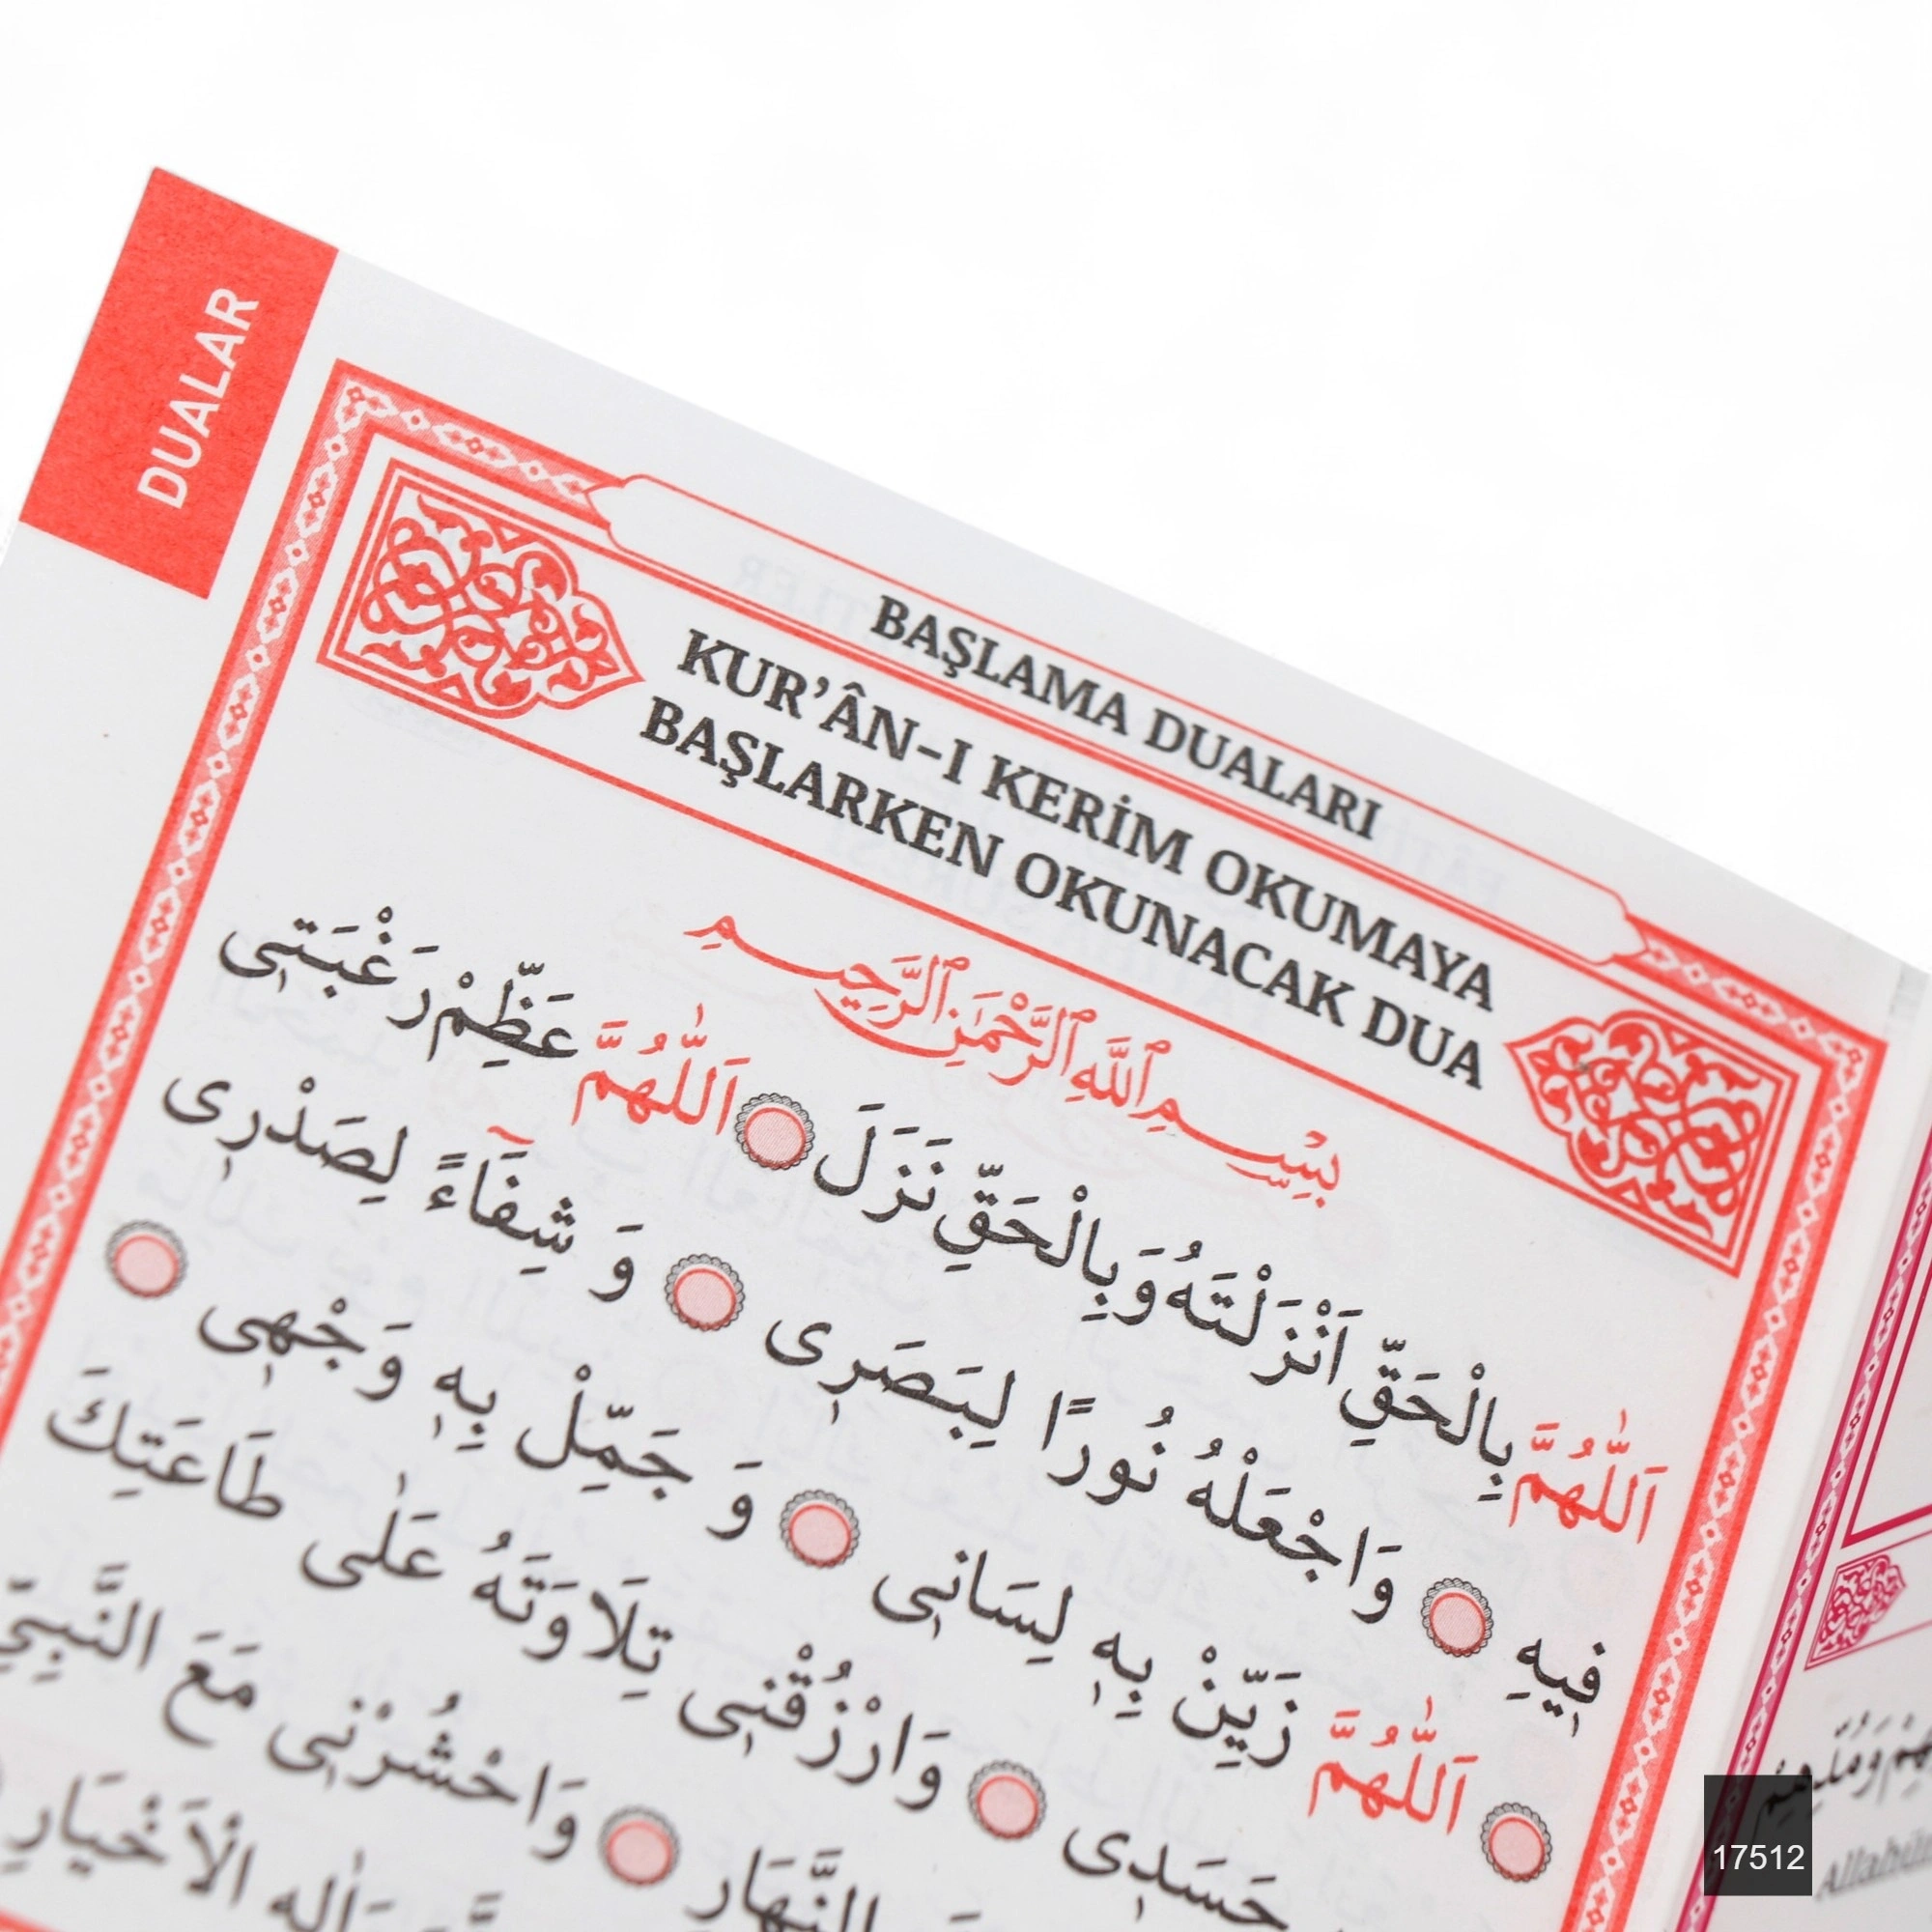 DUALAR
BAŞLAMA DUALARI
KUR’ÂN-I KERİM OKUMAYA
BAŞLARKEN OKUNACAK DUA
بِسْمِ ٱللَّهِ ٱلرَّحْمٰنِ ٱلرَّحِيمِ
اَللّٰهُمَّ بِالْحَقِّ اَنْزَلْتَهُ وَبِالْحَقِّ نَزَلَ اَللّٰهُمَّ عَظِّمْ رَغْبَتٖى
فٖيهِ وَاجْعَلْهُ نُورًا لِبَصَرٖى وَ شِفَٓاءً لِصَدْرٖى
اَللّٰهُمَّ زَيِّنْ بِهٖ لِسَانٖى وَ جَمِّلْ بِهٖ وَجْهٖى
حَسَدٖى وَارْزُقْنٖى تِلَاوَتَهُ عَلٰى طَاعَتِكَ
النَّهَارِ وَاحْشُرْنٖى مَعَ النَّبِىِّ
وَاٰلِهِ الْاَخْيَارِ
17512